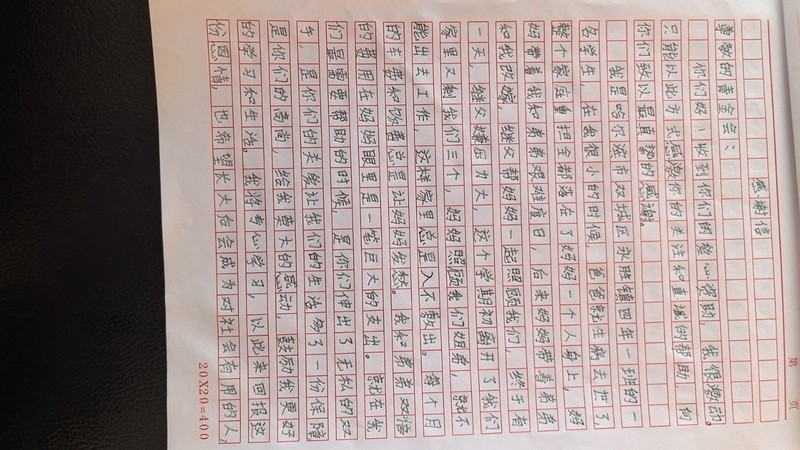 第 页
感谢信
尊敬的善金会：
你们好！收到你们的爱心资助，我很激动。
只能以此方式感激你的关注和真诚的帮助，向
你们致以最真挚的感谢。
我是哈尔滨市双城区永胜镇四年一班的一
名学生，在我很小的时候，爸爸就生病去世了，
整个家庭重担全都落在了妈妈一个人身上，妈
妈带着我和弟弟艰难度日，后来妈妈带着弟弟
和我改嫁，继父帮妈妈一起照顾我们，终于有
一天，继父嫌压力大，这个学期初离开了我们
家里又剩我们三个，妈妈照顾我们姐弟，就不
能出去工作，这样家里总是入不敷出。每个月
的车费和饭费总是让妈妈发愁。我和弟弟双倍
的费用在妈妈眼里是一笔巨大的支出。就在我
们最需要帮助的时候，是你们伸出了无私的双
手，是你们的关爱让我们的生活多了一份保障
是你们的高尚，给我莫大的感动，鼓励我更好
的学习和生活。我将专心学习，以此来回报这
份恩情，也希望长大后会成为对社会有用的人，
20X20=400